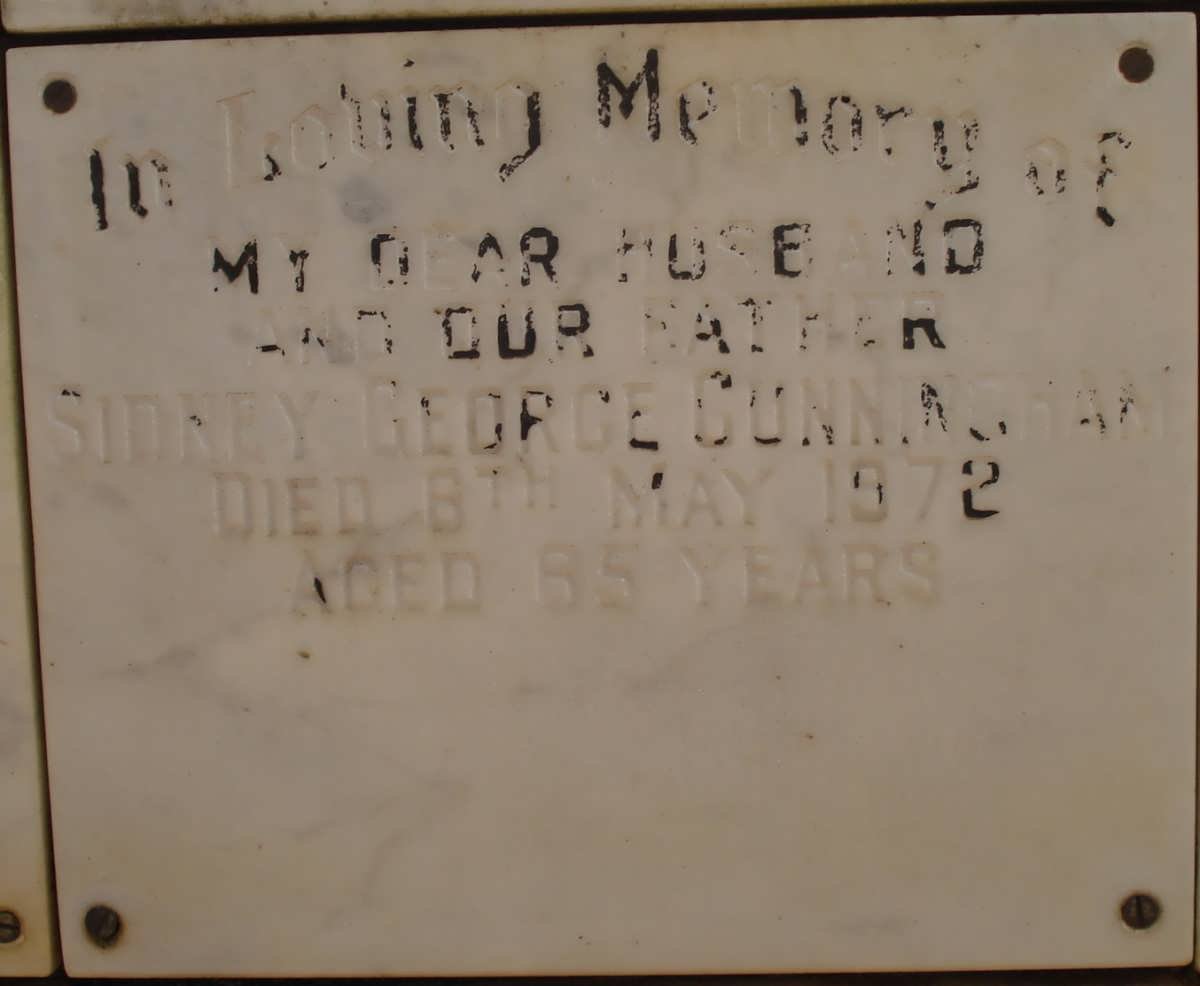 In Loving Memory of
MY DEAR HUSBAND
AND OUR FATHER
SIDNEY GEORGE CUNNINGHAM
DIED 8TH MAY 1972
AGED 65 YEARS